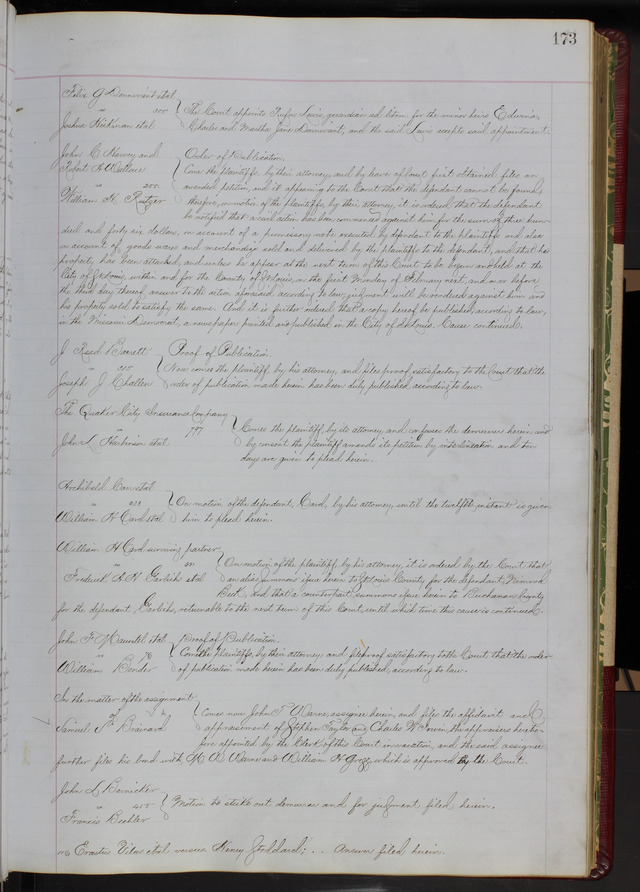 173
Felix G Dannvant et al
vs
Joshua Hickman et al
The Court appoints Rufus Lewis, guardian ad litem for the minor heirs Edwinia,
Charles and Martha Jane Dannvant, and the said Lewis accepts said appointment.
John C. Harvey and
Robert A Wallace
vs
William H. Rutger
Order of Publication.
Come the plaintiffs by their attorney, and by leave of Court first obtained, file an
amended petition, and it appearing to the Court that the defendant cannot be found,
therefore, on motion of the plaintiffs, by their attorney, it is ordered that the defendant
be notified that a civil action has been commenced against him for the sum of three hun-
dred and forty six dollars, on account of a promissory note executed by defendant to the plaintiffs and also
on account of goods wares and merchandise sold and delivered by the plaintiffs to the defendant, and that his
property has been attached, and unless he appear at the next term of this Court to be begun and held at the
City of St Louis, within and for the County of St Louis, on the first Monday of February next, and on or before
the third day thereof answer to the action aforesaid, according to law, judgment will be rendered against him and
his property sold to satisfy the same. And it is further ordered that a copy hereof be published, according to law,
in the Missouri Democrat, a newspaper printed and published in the City of St Louis. Cause continued.
J Reed Barrett
Joseph J Challen
Proof of Publication.
Now comes the plaintiff by his attorney, and files proof satisfactory to the Court that the
order of publication made herein has been duly published, according to law.
The Quaker City Insurance Company
vs 797
John L Harbinson et al
Comes the plaintiff, by its attorney, and confesses the demurrer herein, and
by consent the plaintiff amends its petition by interlineation and ten
days are given to plead herein.
Archibald Carr et al
William H Card et al
On motion of the defendant, Card, by his attorney, until the twelfth instant is given
him to plead herein.
William H Card surviving partner
Frederick A. H. Garlichs et al
On motion of the plaintiff, by his attorney, it is ordered by the Court that
an alias summons issue herein to St Louis County, for the defendant,
and that a counterpart summons issue herein to Buchanan County
for the defendant, Garlichs, returnable to the next term of this Court, until which time this cause is continued.
John F Mauntel et al
vs 76
William Bender
Proof of Publication.
Come the plaintiffs, by their attorney, and file proof satisfactory to the Court that the order
of publication made herein has been duly published, according to law.
In the matter of the assignment
of
Samuel N Brainard
Comes now John F. Warne, assignee herein, and files the affidavit and
appraisement of Stephen Taylor and Charles W. Irwin, the appraisers hereto-
fore appointed by the Clerk of this Court in vacation, and the said assignee
further files his bond with M. D. Warne and William H Gregg which is approved by the Court.
John L Bernicker
vs
Francis Bechler
Motion to strike out demurrer and for judgment filed herein.
Erastus Titus et al versus Henry Stoddard; . . Answer filed herein.